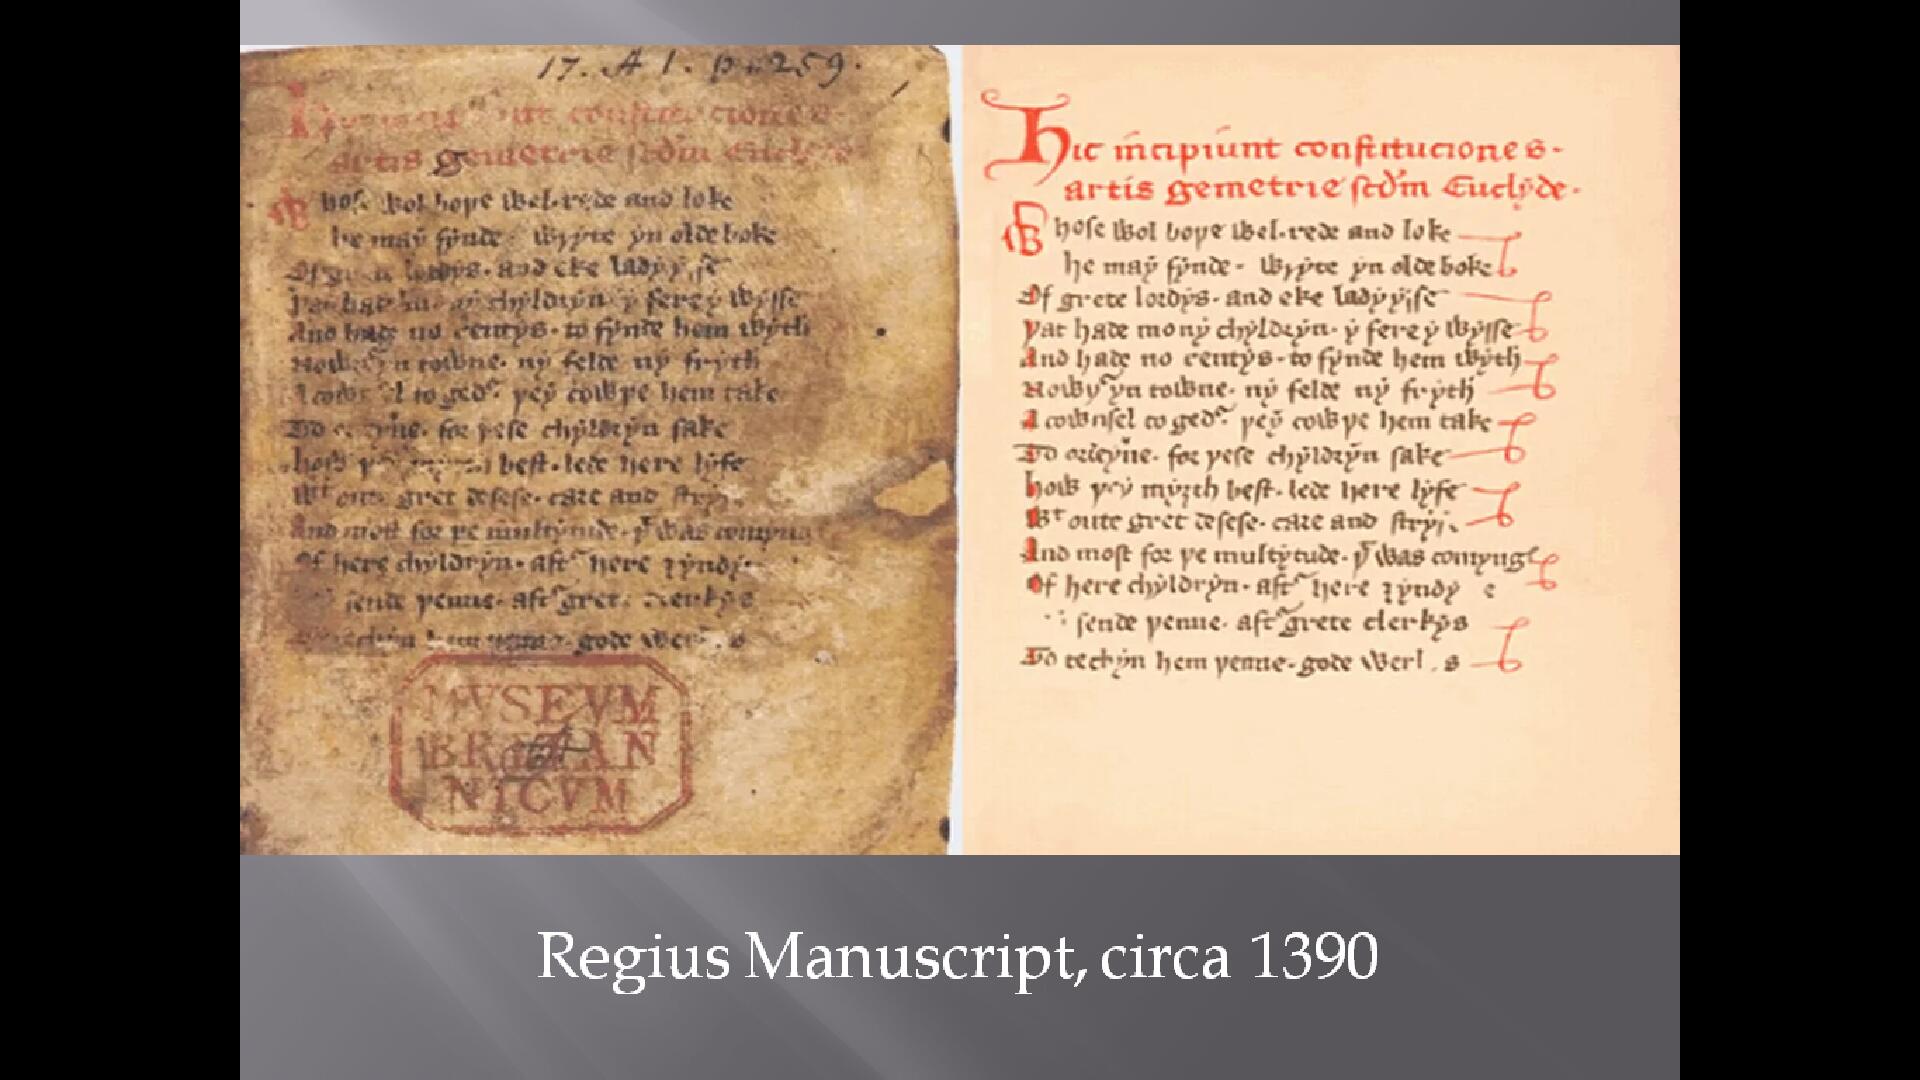 17. A 1. p. 259.
constituciones.
artis gemetrie scdm Euclyde.
Whose wol hope wel. rede and loke
he may fynde. wryte yn olde boke
Of lordys. and eke ladyysse
chyldryn. y fere y wysse
And hade no rentys. to fynde hem wyth
Nowþ yn towne. ny felde ny fryth
A to ged. þey cowþe hem take
To for þese chyldryn sake
how best. lede here lyfe
Wt oute gret desese. care and
And most for þe multytude. þt was comyng
Of here chyldryn. aft here
sende þenne. aft grete clerkys
techyn hem þenne. gode
MVSEVM
BRITAN
NICVM
Hic incipiunt constituciones.
artis gemetrie scdm Euclyde.
Whose wol hope wel. rede and loke
he may fynde. wryte yn olde boke
Of grete lordys. and eke ladyysse
þat hade mony chyldryn. y fere y wysse
And hade no rentys. to fynde hem wyth
Nowþ yn towne. ny felde ny fryth
A cownsel to ged. þey cowþe hem take
To ordeyne. for þese chyldryn sake
how þey best. lede here lyfe
Wt oute gret desese. care and
And most for þe multytude. þt was comyng
Of here chyldryn. aft here
sende þenne. aft grete clerkys
To techyn hem þenne. gode
Regius Manuscript, circa 1390